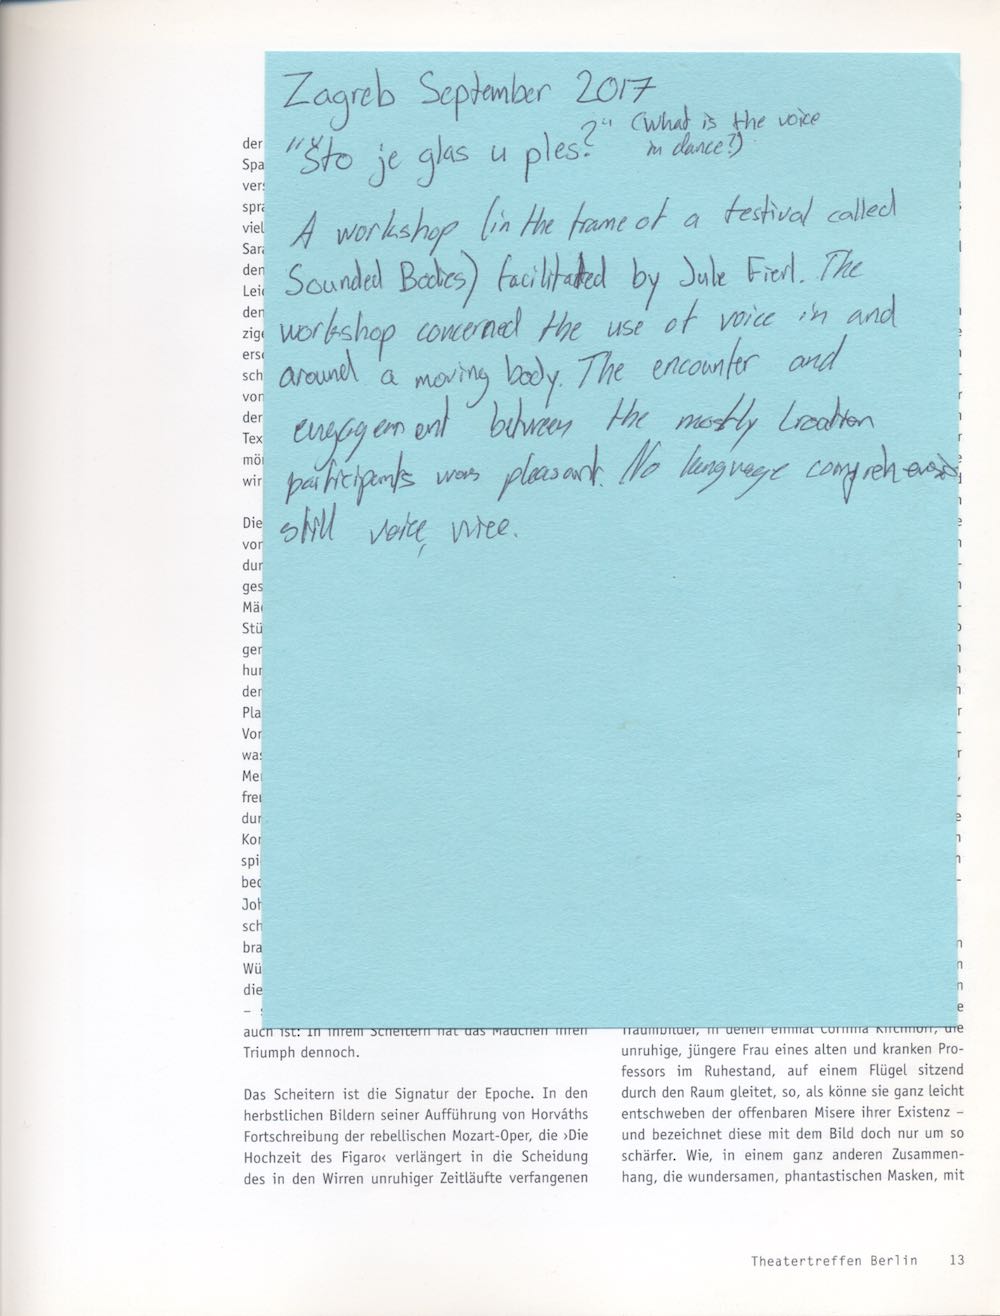 Zagreb September 2017
"Što je glas u ples?" (What is the voice
in dance?)
A workshop (in the frame of a festival called
Sounded Bodies) facilitated by Jule Fierl. The
workshop concerned the use of voice in and
around a moving body. The encounter and
engagement between the mostly Croatian
participants was pleasant. No language comprehension
still voice, voice.
der
Spa
vers
spra
viel
Sara
den
Leid
den
zige
ersc
sch
von
der
Tex
mö
wir
Die
vor
dur
ges
Mäd
Stü
ger
hur
der
Pla
Vor
was
Me
frei
dur
Kor
spi
bed
Joh
sch
bra
Wü
die
auch ist: In ihrem Scheitern hat das Mädchen ihren
Triumph dennoch.
Das Scheitern ist die Signatur der Epoche. In den
herbstlichen Bildern seiner Aufführung von Horváths
Fortschreibung der rebellischen Mozart-Oper, die ›Die
Hochzeit des Figaro‹ verlängert in die Scheidung
des in den Wirren unruhiger Zeitläufte verfangenen
Traumbilder, in denen einmal Corinna Kirchhoff, die
unruhige, jüngere Frau eines alten und kranken Pro-
fessors im Ruhestand, auf einem Flügel sitzend
durch den Raum gleitet, so, als könne sie ganz leicht
entschweben der offenbaren Misere ihrer Existenz –
und bezeichnet diese mit dem Bild doch nur um so
schärfer. Wie, in einem ganz anderen Zusammen-
hang, die wundersamen, phantastischen Masken, mit
Theatertreffen Berlin 13